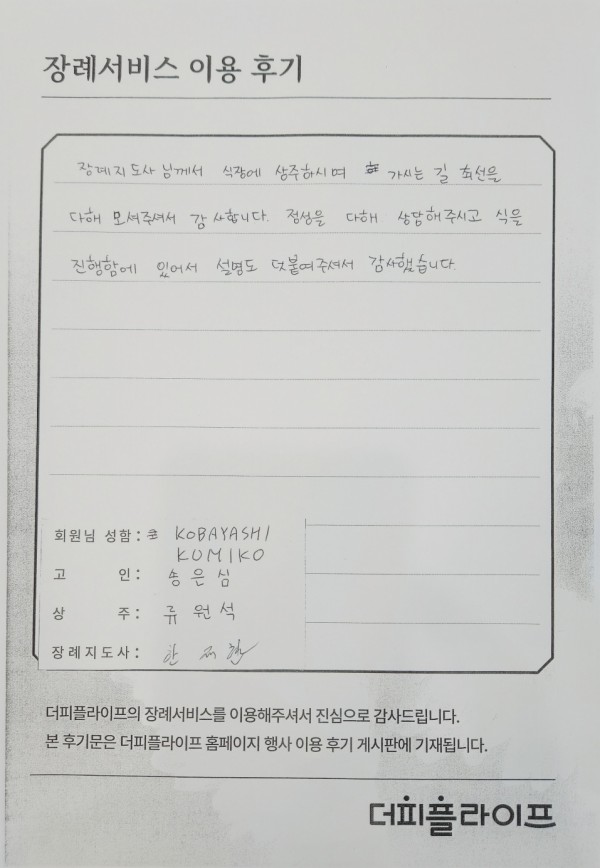 장례서비스 이용 후기
장례지도사 님께서 식장에 상주하시며 가시는 길 최선을
다해 모셔주셔서 감사합니다. 정성을 다해 상담해주시고 식을
진행함에 있어서 설명도 덧붙여주셔서 감사했습니다.
회원님 성함: KOBAYASHI
KUMIKO
고 인: 송은심
상 주: 류원석
장례지도사:
더피플라이프의 장례서비스를 이용해주셔서 진심으로 감사드립니다.
본 후기문은 더피플라이프 홈페이지 행사 이용 후기 게시판에 기재됩니다.
더피플라이프